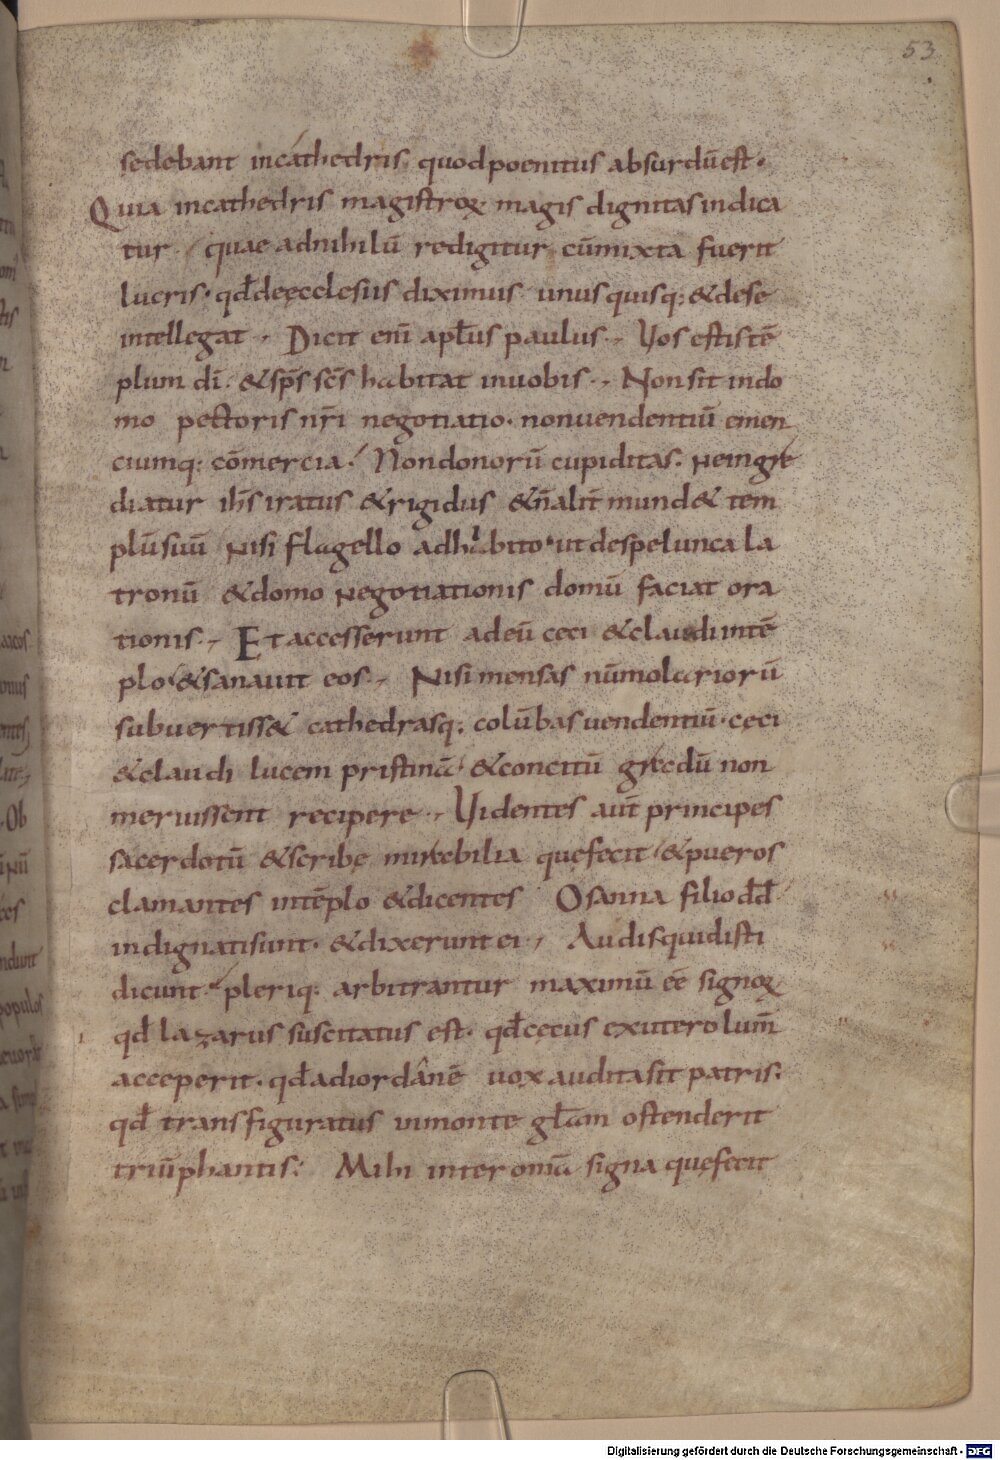 53
sedebant incathedris, quodpoenitus absurdūest.
Quia incathedris magistroꝝ magis dignitasindica
tur. quae adnihilū redigitur cūmixta fuerit
lucris. qd̄deęcclesiis diximus unusquisq; &dese
intellegat. Dicit enī apłus paulus. Vos estistē
plum dī. &sp̄s sc̄s habitat inuobis. Nonsit indo
mo pectoris nr̄i negotiatio. nonuendentiū emen
ciumq; cōmercia. Nondonorū cupiditas. Neingre
diatur ih̄s iratus &rigidus &n̄alit̄ mund& tem
plūsuū Nisi flagello adhibito ut despelunca la
tronū &domo Negotiationis domū faciat ora
tionis. Et accesserunt adeū ceci &claudi intē
plo &sanauit eos. Nisi mensas nūmolariorū
subuertiss& cathedrasq; colūbas uendentiū. cęci
&claudi lucem pristinā &concitū gradū non
meruissent recipere. Videntes aūt principes
sacerdotū &scribę mirabilia quęfecit &pueros
clamantes intēplo &dicentes Osanna filio dd̄
indignatisunt. &dixerunt ei. Audisquidisti
dicunt pleriq; arbitrantur maximū eē signoꝝ
qd̄ lazarus suscitatus est. qd̄cęcus exutero lum̄
acceperit. qd̄adiordānē uox auditasit patris.
qd̄ transfiguratus inmonte gl̄am ostenderit
triūphantis. Mihi inter omā signa quęfecit
Digitalisierung gefördert durch die Deutsche Forschungsgemeinschaft - DFG